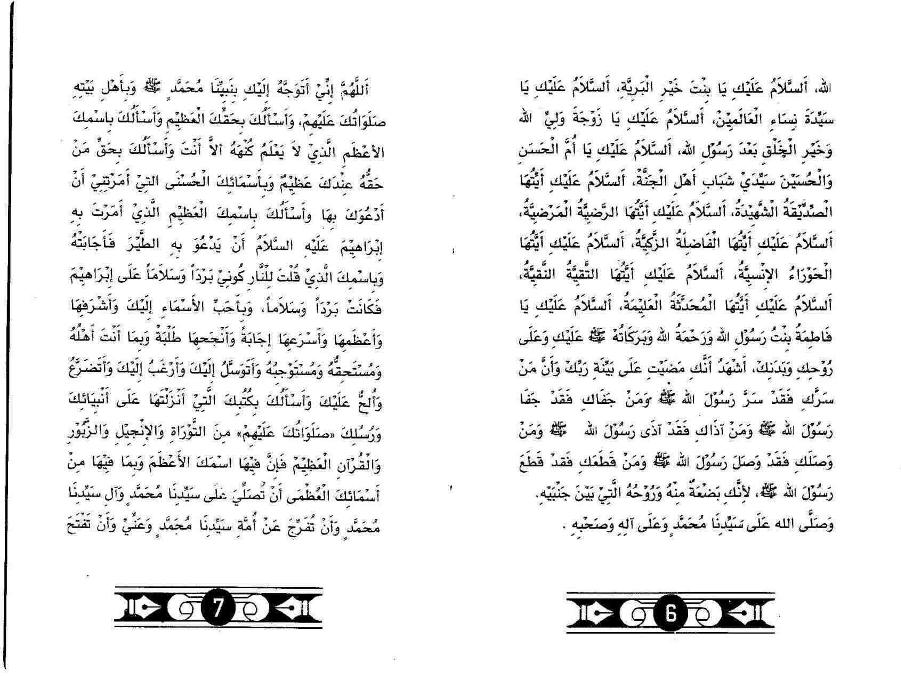 الله، اَلسَّلاَمُ عَلَيْكِ يَا بِنْتَ خَيْرِ الْبَرِيَّةِ، اَلسَّلاَمُ عَلَيْكِ يَا
سَيِّدَةَ نِسَاءِ الْعَالَمِيْنَ، اَلسَّلاَمُ عَلَيْكِ يَا زَوْجَةَ وَلِيِّ الله
وَخَيْرِ الْخَلْقِ بَعْدَ رَسُوْلِ الله، اَلسَّلاَمُ عَلَيْكِ يَا أُمَّ الْحَسَنِ
وَالْحُسَيْنَ سَيِّدَيْ شَبَابِ أَهْلِ الْجَنَّةْ، اَلسَّلاَمُ عَلَيْكِ أَيَّتُهَا
الصِّدِّيْقَةُ الشَّهِيْدَةُ، اَلسَّلاَمُ عَلَيْكِ أَيَّتُهَا الرَّضِيَّةُ الْمَرْضِيَّةُ،
اَلسَّلاَمُ عَلَيْكِ أَيَّتُهَا الْفَاضِلَةُ الزَّكِيَّةُ، اَلسَّلاَمُ عَلَيْكِ أَيَّتُهَا
الْحَوْرَاءُ الإِنْسِيَّةُ، اَلسَّلاَمُ عَلَيْكِ أَيَّتُهَا التَّقِيَّةُ النَّقِيَّةُ،
اَلسَّلاَمُ عَلَيْكِ أَيَّتُهَا الْمُحَدَّثَةُ الْعَلِيْمَةُ، اَلسَّلاَمُ عَلَيْكِ يَا
فَاطِمَةُ بِنْتُ رَسُوْلِ الله وَرَحْمَةُ الله وَبَرَكَاتُهُ ﷺ عَلَيْكِ وَعَلَى
رُوْحِكِ وَبَدَنِكِ، أَشْهَدُ أَنَّكِ مَضَيْتِ عَلَى بَيِّنَةِ رَبِّكِ وَأَنَّ مَنْ
سَرَّكِ فَقَدْ سَرَّ رَسُوْلَ الله ﷺ وَمَنْ جَفَاكِ فَقَدْ جَفَا
رَسُوْلَ الله ﷺ وَمَنْ آذَاكِ فَقَدْ آذَى رَسُوْلَ الله ﷺ وَمَنْ
وَصَلَكِ فَقَدْ وَصَلَ رَسُوْلَ الله ﷺ وَمَنْ قَطَعَكِ فَقَدْ قَطَعَ
رَسُوْلَ الله ﷺ، لأَنَّكِ بَضْعَةٌ مِنْهُ وَرُوْحُهُ الَّتِيْ بَيْنَ جَنْبَيْهِ.
وَصَلَّى الله عَلَى سَيِّدِنَا مُحَمَّدٍ وَعَلَى آلِهِ وَصَحْبِهِ .
6
اَللَّهُمَّ إِنِّيْ أَتَوَجَّهُ إِلَيْكَ بِنَبِيِّنَا مُحَمَّدٍ ﷺ وَبِأَهْلِ بَيْتِهِ
صَلَوَاتُكَ عَلَيْهِمْ، وَأَسْأَلُكَ بِحَقِّكَ الْعَظِيْمِ وَأَسْأَلُكَ بِاسْمِكَ
الأَعْظَمِ الَّذِيْ لاَ يَعْلَمُ كُنْهَهُ الاَّ أَنْتَ وَأَسْأَلُكَ بِحَقِّ مَنْ
حَقُّهُ عِنْدَكَ عَظِيْمٌ وَبِأَسْمَائِكَ الْحُسْنَى التِيْ أَمَرْتَنِيْ أَنْ
أَدْعُوَكَ بِهَا وَأَسْأَلُكَ بِاسْمِكَ الْعَظِيْمِ الَّذِيْ أَمَرْتَ بِهِ
إِبْرَاهِيْمَ عَلَيْهِ السَّلاَمُ أَنْ يَدْعُوَ بِهِ الطَّيْرَ فَأَجَابَتْهُ
وَبِاسْمِكَ الَّذِيْ قُلْتَ لِلْنَّارِ كُونِيْ بَرْداً وَسَلاَماً عَلَى إِبْرَاهِيْمَ
فَكَانَتْ بَرْداً وَسَلاَماً، وَبِأَحَبِّ الأَسْمَاءِ إِلَيْكَ وَأَشْرَفِهَا
وَأَعْظَمِهَا وَأَسْرَعِهَا إِجَابَةً وَأَنْجَحِهَا طَلْبَةً وَبِمَا أَنْتَ أَهْلُهُ
وَمُسْتَحِقُّهُ وَمُسْتَوْجِبُهُ وَأَتَوَسَّلُ إِلَيْكَ وَأَرْغَبُ إِلَيْكَ وَأَتَضَرَّعُ
وَأُلِحُّ عَلَيْكَ وَأَسْأَلُكَ بِكُتُبِكَ الَّتِيْ أَنْزَلْتَهَا عَلَى أَنْبِيَائِكَ
وَرُسُلِكَ «صَلَوَاتُكَ عَلَيْهِمْ» مِنَ التَّوْرَاةِ وَالإِنْجِيْلِ وَالزَّبُوْرِ
وَالْقُرْآنِ الْعَظِيْمِ فَإِنَّ فِيْهَا اسْمَكَ الأَعْظَمَ وَبِمَا فِيْهَا مِنْ
أَسْمَائِكَ الْعُظْمَى أَنْ تُصَلِّيَ عَلَى سَيِّدِنَا مُحَمَّدٍ وَآلِ سَيِّدِنَا
مُحَمَّدٍ وَأَنْ تُفَرِّجَ عَنْ أُمَّةِ سَيِّدِنَا مُحَمَّدٍ وَعَنِّيْ وَأَنْ تَفْتَحَ
7